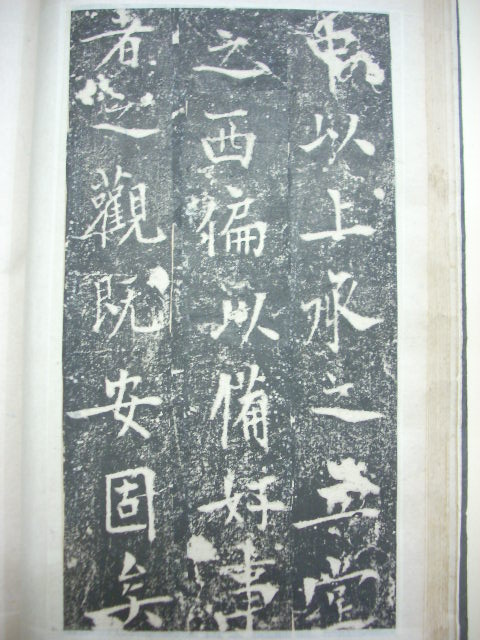 以上承之堂
之西偏以備好事
者之觀既安固矣